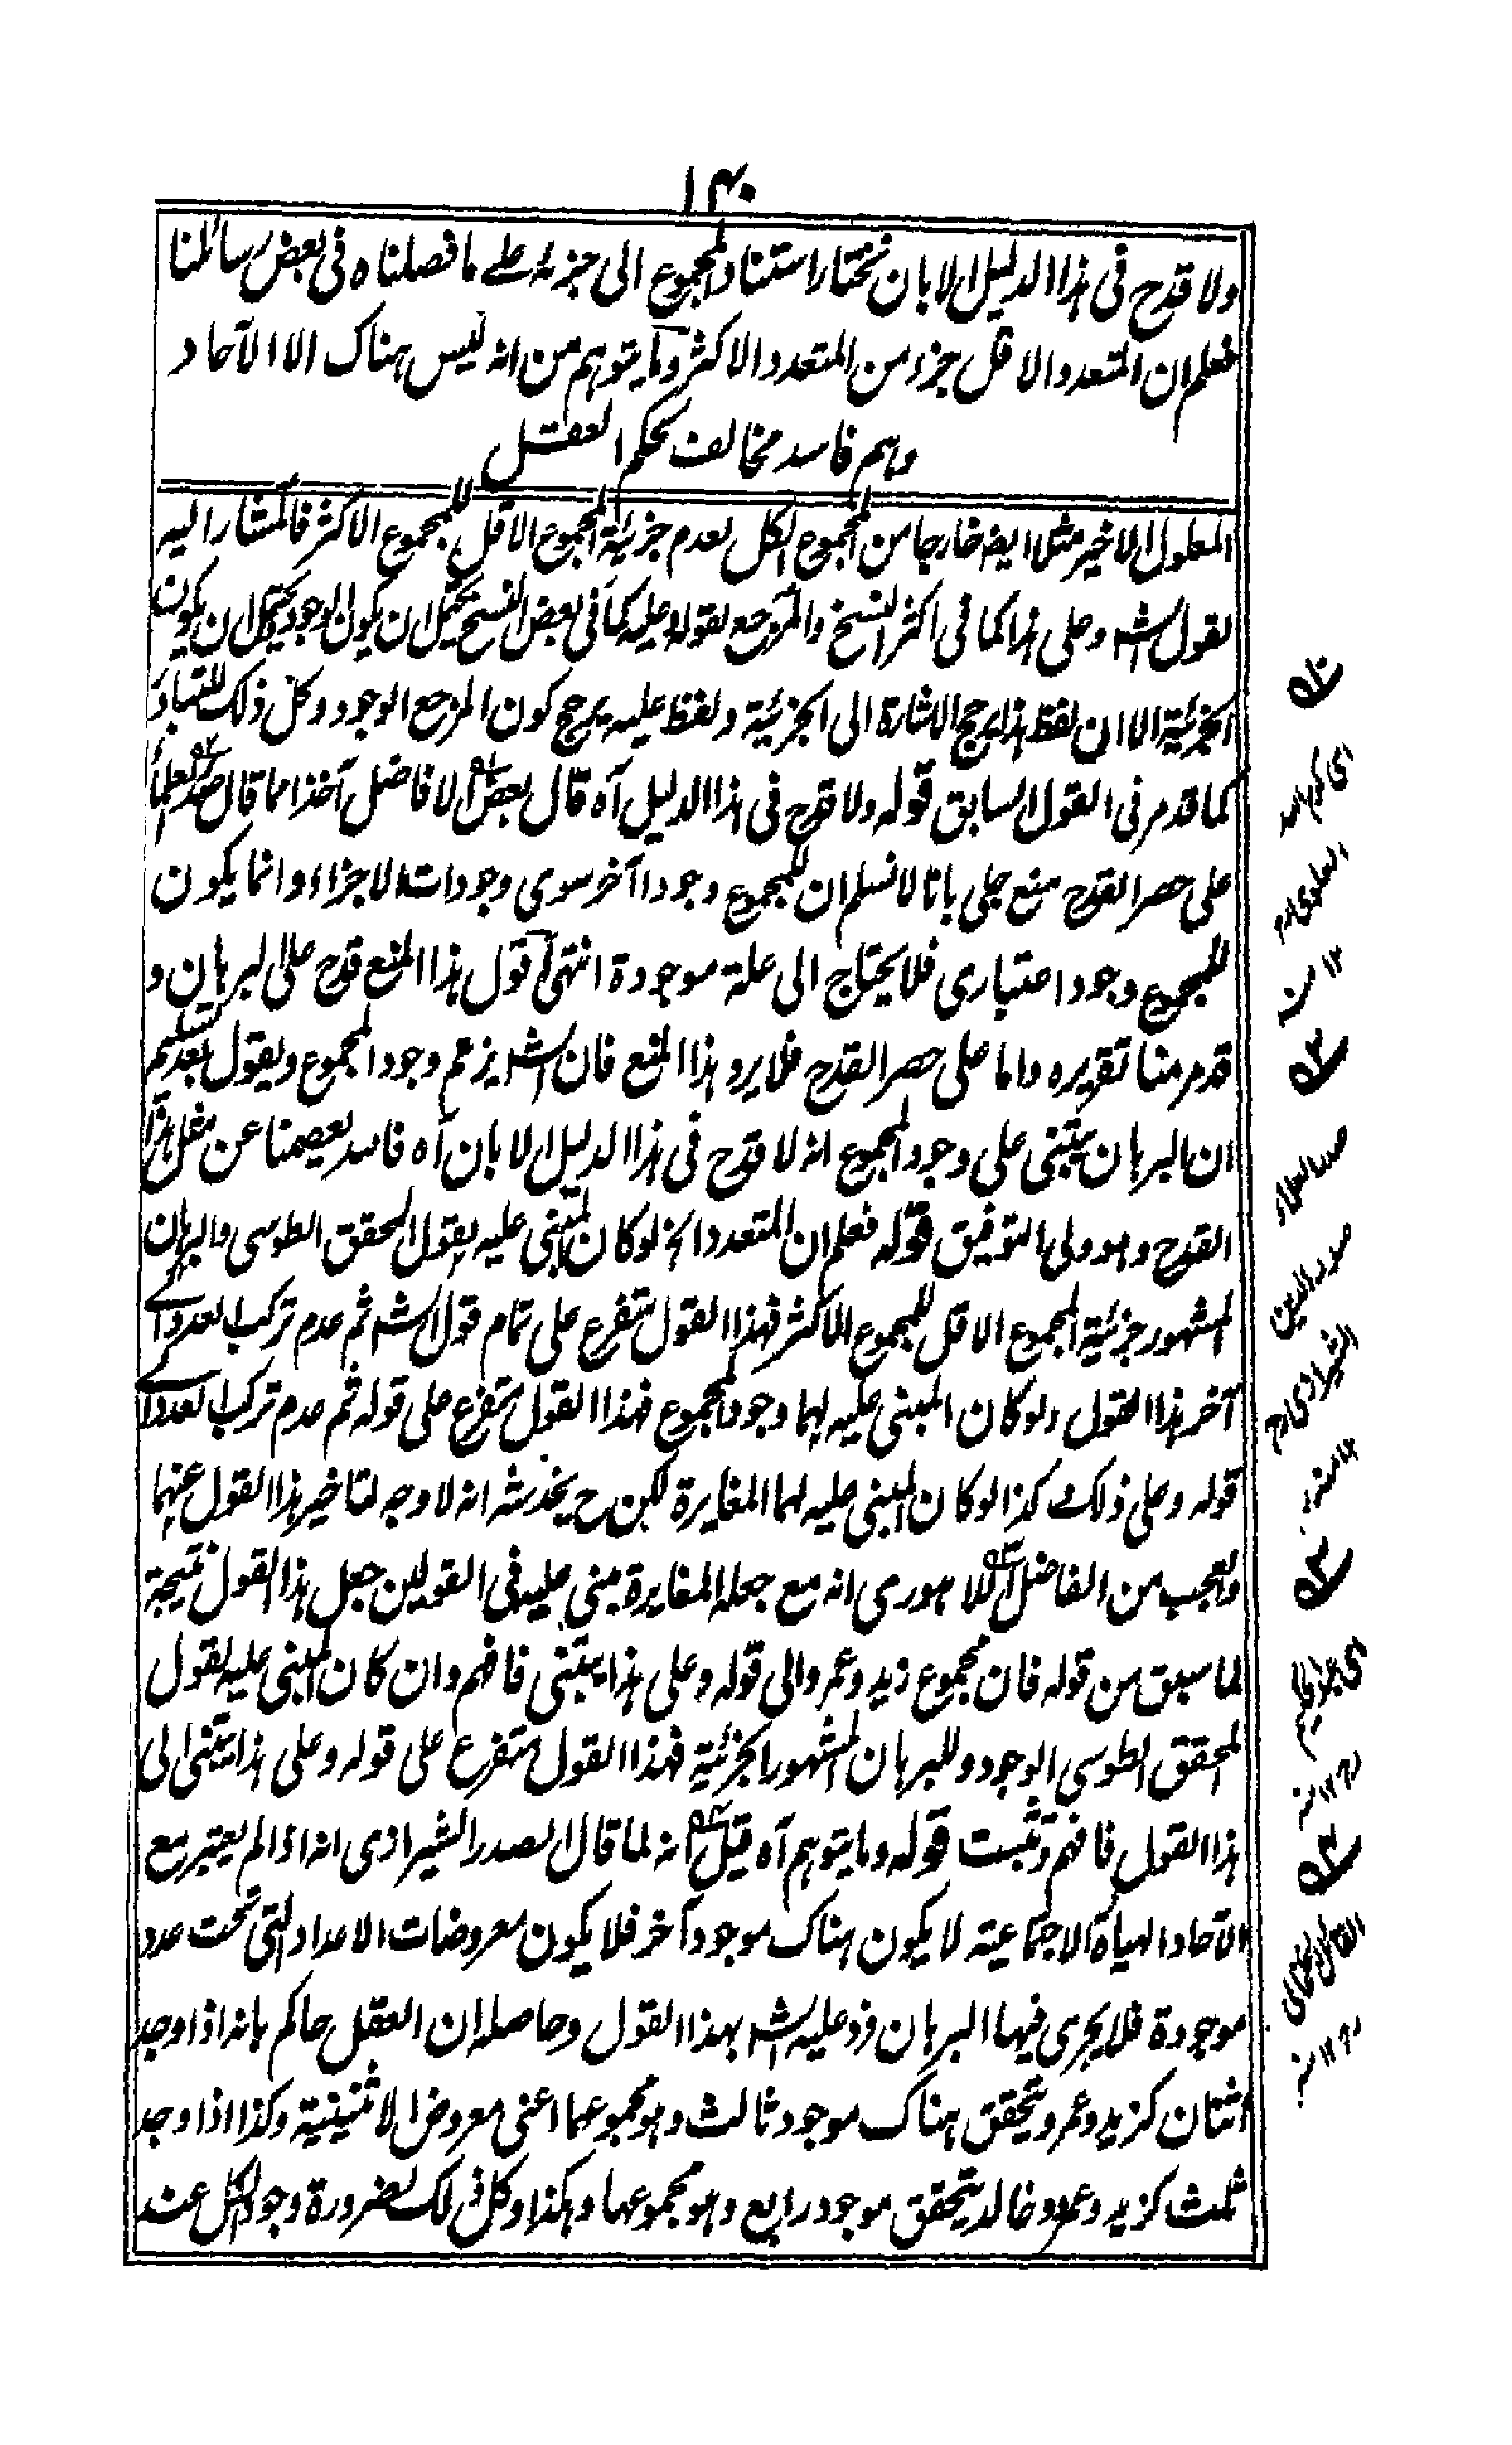 ١٤٠
ولا قدح فى هذا الدليل الا بان نختار استناد المجموع الى جزئه على ما فصلناه فى بعض رسائلنا
فعلم ان المتعدد الاقل جزء من المتعدد الاكثر وما يتوهم من انه ليس هناك الا الآحاد
وهم فاسد مخالف لحكم العقل
المعلول الاخير مثلا ايضا خارجا من المجموع الكل لعدم جزئية المجموع الاقل للمجموع الاكثر فالمشار اليه
لقول الشه وعلى هذا كما فى اكثر النسخ والمرجع لقوله وعليه كما فى بعض النسخ يحتمل ان يكون الوجود يحتمل ان يكون
الجزئية الا ان لفظ هذا يرجح الاشارة الى الجزئية ولفظ عليه يرجح كون المرجع الوجود وكل ذلك للتبادر
كما قد مر فى القول السابق قوله ولا قدح فى هذا الدليل آه قال بعض الافاضل آخذا مما قال صدر العلماء
على حصر القدح منع جلى بانا لا نسلم ان للمجموع وجودا آخر سوى وجودات الاجزاء وانما يكون
للمجموع وجود اعتبارى فلا يحتاج الى علة موجودة انتهى اقول هذا المنع قدح على البرهان و
قد مر منا تقريره واما على حصر القدح فلا يرد هذا المنع فان الشه يزعم وجود المجموع ويقول بعد تسليم
ان البرهان يبتنى على وجود المجموع انه لا قدح فى هذا الدليل الا بان آه فالله يعصمنا عن مثل هذا
القدح وهو ولى التوفيق قوله فعلم ان المتعدد الخ لو كان المبنى عليه لقول المحقق الطوسى والبرهان
المشهور جزئية المجموع الاقل للمجموع الاكثر فهذا القول متفرع على تمام قول الشه ثم عدم تركب العدد الى
آخر هذا القول ولو كان المبنى عليه لهما وجود المجموع فهذا القول متفرع على قوله ثم عدم تركب العدد الى
قوله وعلى ذلك وكذا لو كان المبنى عليه لهما المغايرة لكن ح يخدشه انه لا وجه لتاخير هذا القول عنهما
والعجب من الفاضل اللاهورى انه مع جعله المغايرة مبنى عليه فى القولين جعل هذا القول نتيجة
لما سبق من قوله فان مجموع زيد وعمرو الى قوله وعلى هذا يبتنى فافهم وان كان المبنى عليه لقول
المحقق الطوسى الوجود وللبرهان المشهور الجزئية فهذا القول متفرع على قوله وعلى هذا يبتنى الى
هذا القول فافهم وتثبت قوله وما يتوهم آه قيل انه لما قال الصدر الشيرازى انه اذا لم يعتبر مع
الآحاد الهيأة الاجتماعية لا يكون هناك موجود آخر فلا يكون معروضات الاعداد التى تحت عدد
موجودة فلا يجرى فيها البرهان فرد عليه الشه بهذا القول وحاصله ان العقل حاكم بانه اذا وجد
اثنان كزيد وعمرو يتحقق هناك موجود ثالث وهو مجموعهما اعنى معروض الاثنينية وكذا اذا وجد
ثلث كزيد وعمرو وخالد يتحقق موجود رابع وهو مجموعها وهكذا وكل ذلك لضرورة وجود الكل عند
صدر العلماء
صدر الدين
الشيرازى